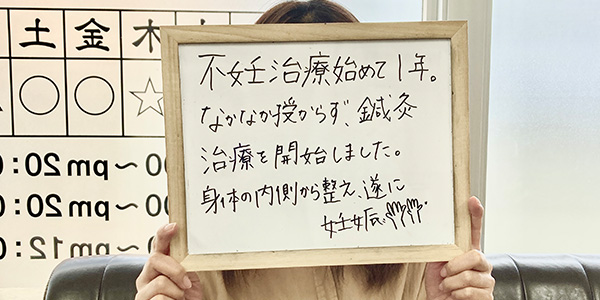 土 金 木
○ ○ ☆
00~20:0
00~20:0
~12:
不妊治療始めて1年。
なかなか授からず、鍼灸
治療を開始しました。
身体の内側から整え、遂に
妊娠